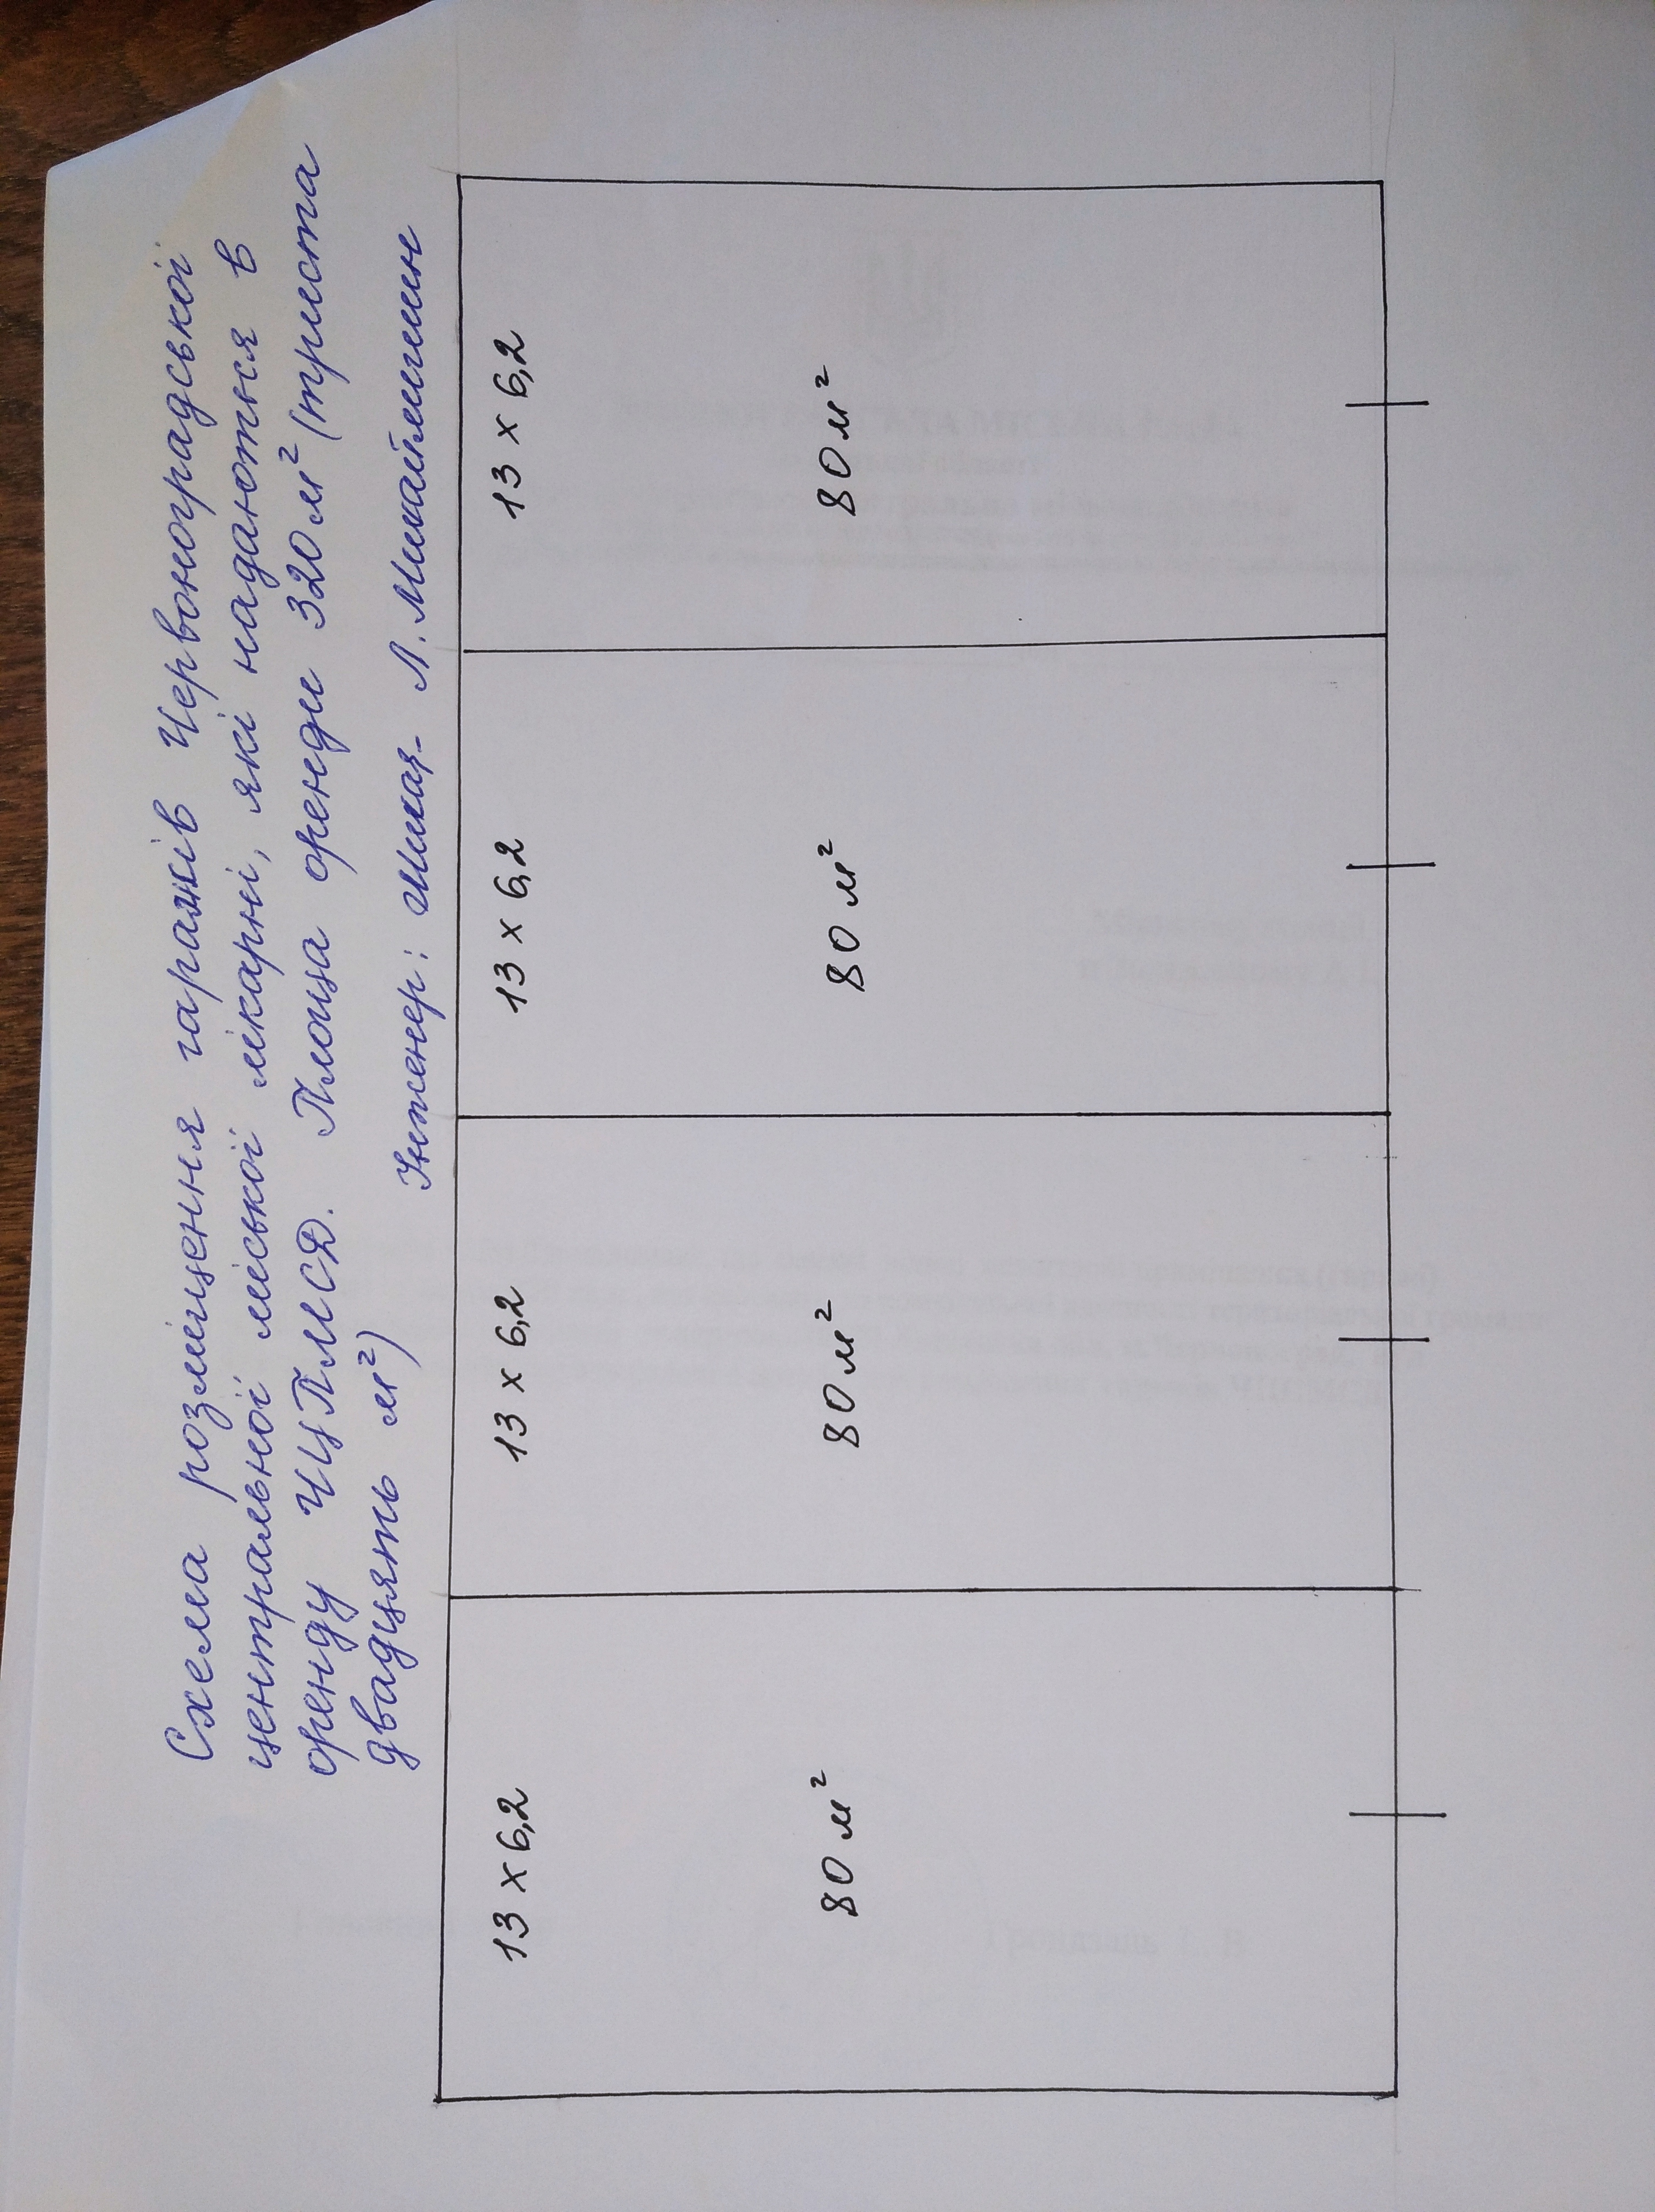 Схема розміщення гаражів Червоноградської
центральної міської лікарні, які надаються в
оренду ЧЦПМСД. Площа оренди 320 м² (триста
двадцять м²)
Інженер: Л.
13 х 6,2
13 х 6,2
13 х 6,2
13 х 6,2
80 м²
80 м²
80 м²
80 м²